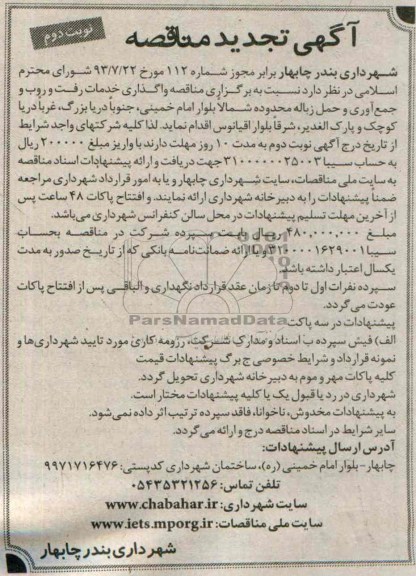 نوبت دوم
آگهی تجدید مناقصه
شهرداری بندر چابهار برابر مجوز شماره ۱۱۲ مورخ ۹۳/۷/۲۲ شورای محترم
اسلامی در نظر دارد نسبت به برگزاری مناقصه واگذاری خدمات رفت و روب و
جمع‌آوری و حمل زباله محدوده شمالاً بلوار امام خمینی، جنوباً دریا بزرگ، غرباً دریا
کوچک و پارک الغدیر، شرقاً بلوار اقیانوس اقدام نماید. لذا کلیه شرکتهای واجد شرایط
از تاریخ درج آگهی نوبت دوم به مدت ۱۰ روز مهلت دارند با واریز مبلغ ۲۰۰۰۰۰۰ ریال
به حساب سیبا ۳۱۰۰۰۰۰۰۲۵۰۰۳ جهت دریافت و ارائه پیشنهادات اسناد مناقصه
به سایت ملی مناقصات، سایت شهرداری چابهار و یا به امور قرارداد شهرداری مراجعه
ضمناً پیشنهادات را به دبیرخانه شهرداری ارائه نمایند. و افتتاح پاکات ۴۸ ساعت پس
از آخرین مهلت تسلیم پیشنهادات در محل سالن کنفرانس شهرداری می‌باشد.
مبلغ ۴۸۰,۰۰۰,۰۰۰ ریال بابت سپرده شرکت در مناقصه بحساب
سیبا و یا ارائه ضمانت‌نامه بانکی که از تاریخ صدور به مدت
یکسال اعتبار داشته باشد.
سپرده نفرات اول تا دوم تا زمان عقد قرارداد نگهداری و الباقی پس از افتتاح پاکات
عودت می‌گردد.
پیشنهادات در سه پاکت:
ParsNamadData
الف) فیش سپرده ب) اسناد و مدارک شرکت، رزومه کاری مورد تایید شهرداری‌ها و
نمونه قرارداد و شرایط خصوصی ج) برگ پیشنهادات قیمت
کلیه پاکات مهر و موم به دبیرخانه شهرداری تحویل گردد.
شهرداری در رد یا قبول یک یا کلیه پیشنهادات مختار است.
به پیشنهادات مخدوش، ناخوانا، فاقد سپرده ترتیب اثر داده نمی‌شود.
سایر شرایط در اسناد مناقصه درج و ارائه می‌گردد.
آدرس ارسال پیشنهادات:
چابهار - بلوار امام خمینی (ره)، ساختمان شهرداری کدپستی: ۹۹۷۱۷۱۶۴۷۶
تلفن تماس: ۰۵۴۳۵۳۲۱۲۵۶
سایت شهرداری: www.chabahar.ir
سایت ملی مناقصات: www.iets.mporg.ir
شهرداری بندر چابهار